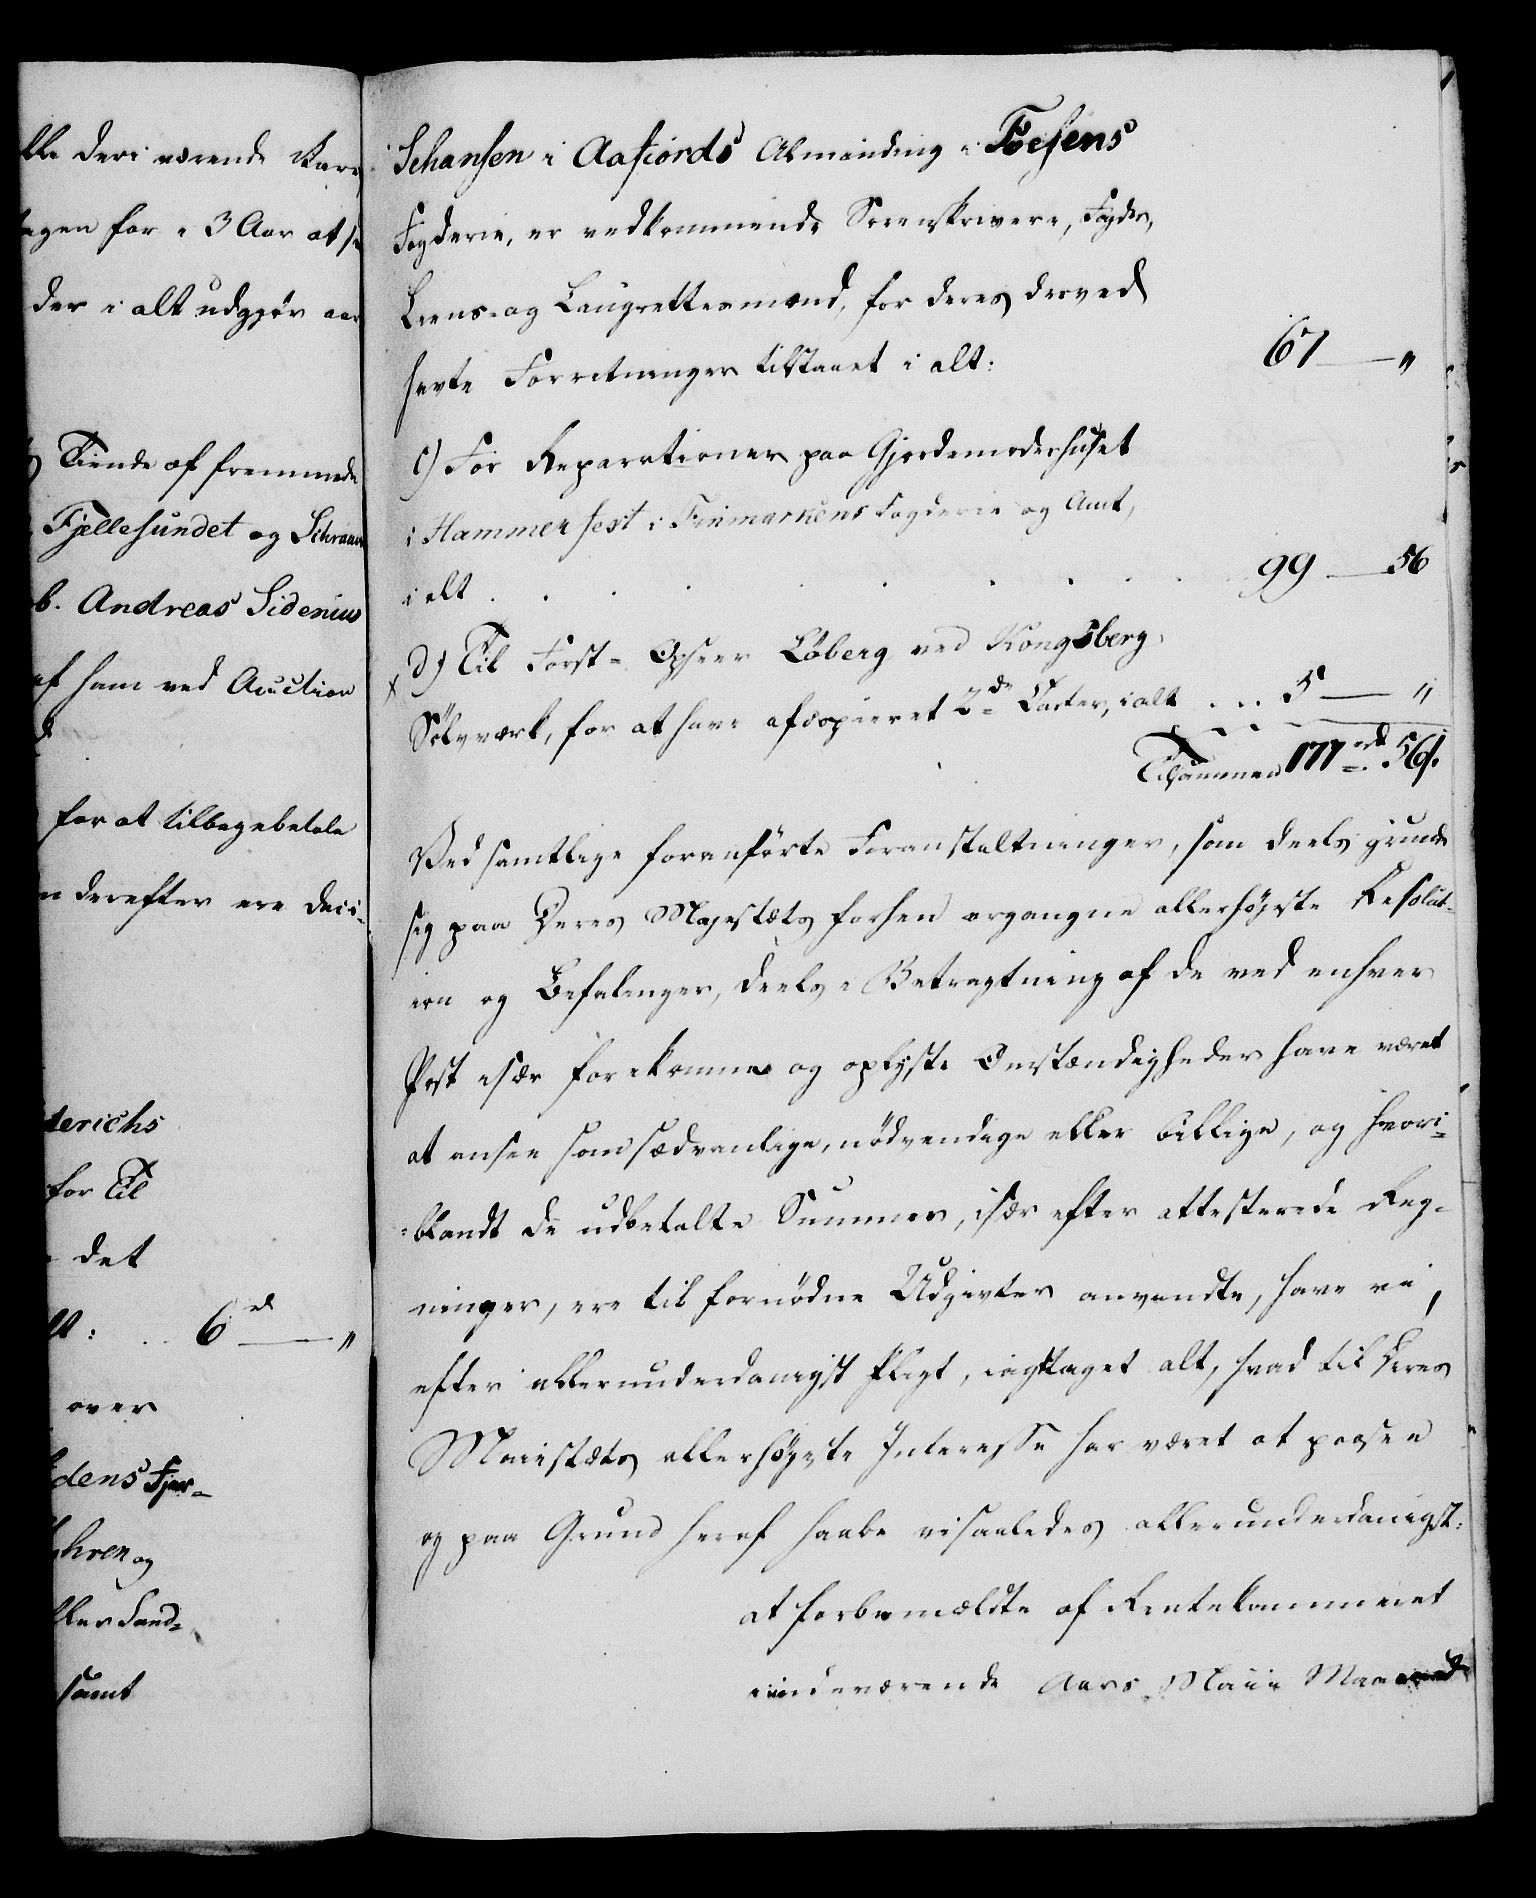 lle deri værende Kar
agen for 3 Aar at
der i alt udgjør aar
Tiende af fremmede
Fjellesundet og Schraa
b. Andreas Sidenius
af ham ved Auction
for at tilbagebetale
n derefter ere deci-
derichs
for Til
det
lt: . . 6 rd — "
over
dens Fjer-
hren og
ller Sand-
samt
Schansen i Aafiords Almending i Foesens
Fogderie, er vedkommende Sorenskrivere, Fogder,
Leens- og Laugrettesmænd, for deres derved
havte Forretninger tilstaaet i alt: 67 — "
c) For Reparationer paa Gjordemoderhuset
i Hammerfest i Finmarkens Fogderie og Amt,
i alt . . . . . . . 99 — 56
x d) Til Forst-Opseer Løberg ved Kongsberg
Sølvværk, for at have afcopieret 2de Carter, i alt . . . 5 — "
Tilsammen 177 rd 56 s.
Ved samtlige foranførte Foranstaltninger, som deels grunde
sig paa Deres Majestæts forhen ergangne allerhøjeste Resolut-
ion og Befalinger, deels i Betragtning af de ved enhver
Post især forekomne og oplyste Omstændigheder have været
at ansee som sædvanlige, nødvendige eller billige, og hvori-
blandt de udbetalte Summer, især efter attesterede Reg-
ninger, ere til fornødne Udgivter anvendte, have vi,
efter allerunderdanigst Pligt, iagttaget alt, hvad til Deres
Majestæts allerhøjeste Interesse har været at paasee
og paa Grund heraf haabe vi saaledes allerunderdanigst:
at forbemældte af Rentekammeret
i indeværende Aars Maii Maaned